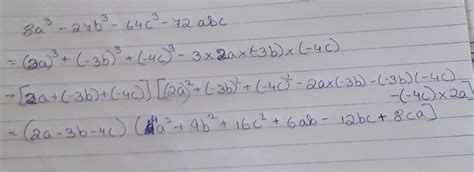 8a³ - 27b³ - 64c³ - 72abc
= (2a)³ + (-3b)³ + (-4c)³ - 3 × 2a × (-3b) × (-4c)
= [2a + (-3b) + (-4c)] [(2a)² + (-3b)² + (-4c)² - 2a × (-3b) - (-3b)(-4c) -
- (-4c) × 2a]
= (2a - 3b - 4c) (4a² + 9b² + 16c² + 6ab - 12bc + 8ca]